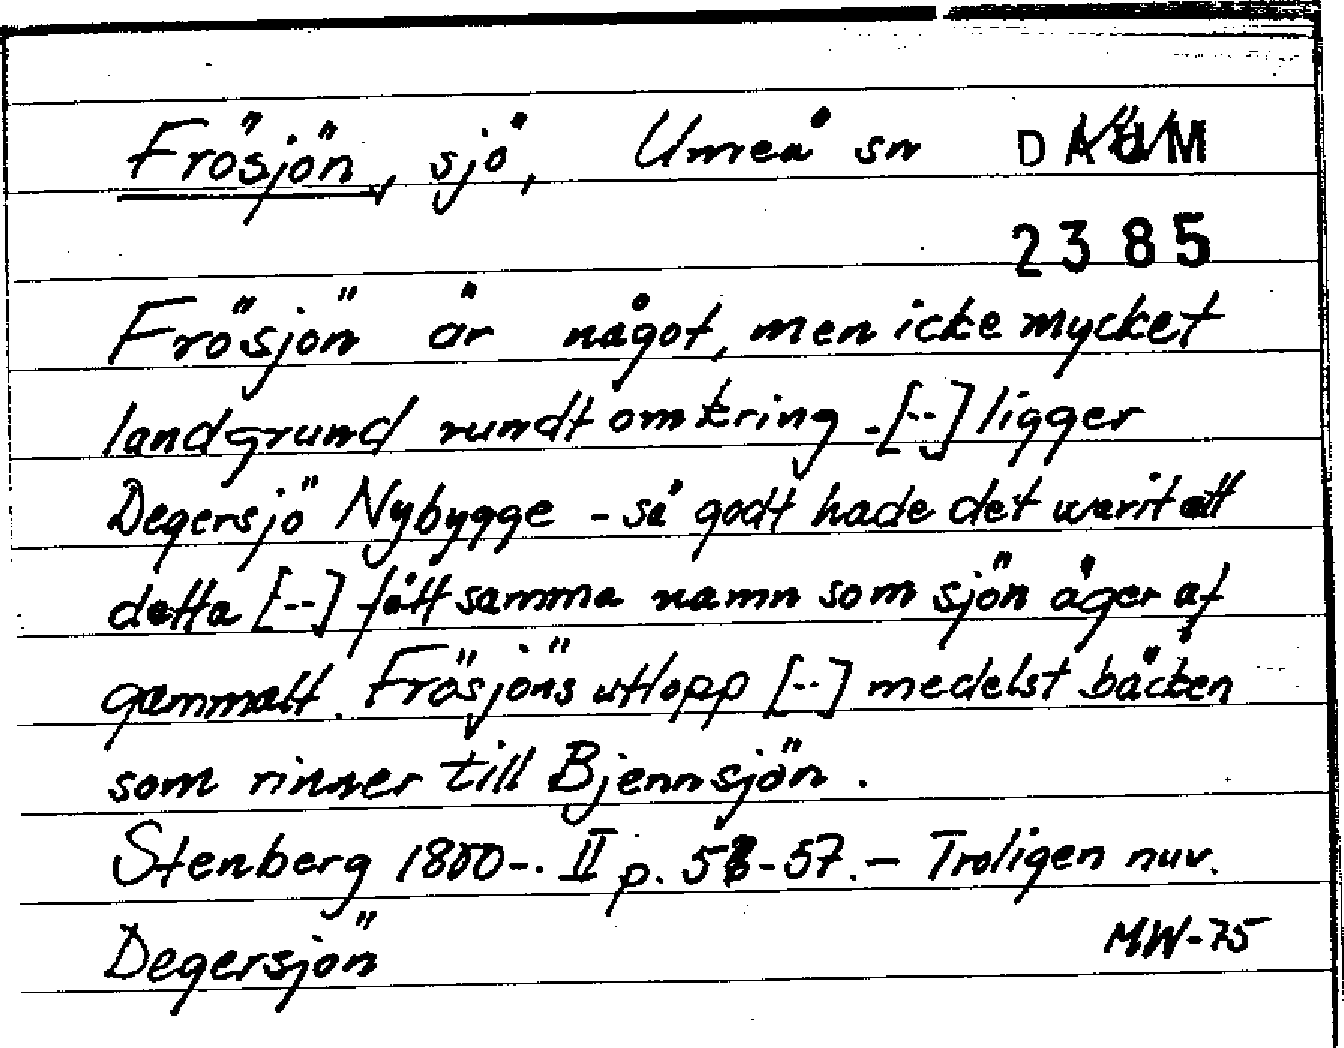 Frösjön, sjö, Umeå sn DAUM
2385
Frösjön är något, men icke mycket
landgrund rundt omkring - [--] ligger
Degersjö Nybygge - så godt hade det warit att
detta [--] fått samma namn som sjön äger af
gammalt. Frösjöns utlopp [--] medelst bäcken
som rinner till Bjennsjön.
Stenberg 1800-. II p. -57. - Troligen nuv.
Degersjön MW-75